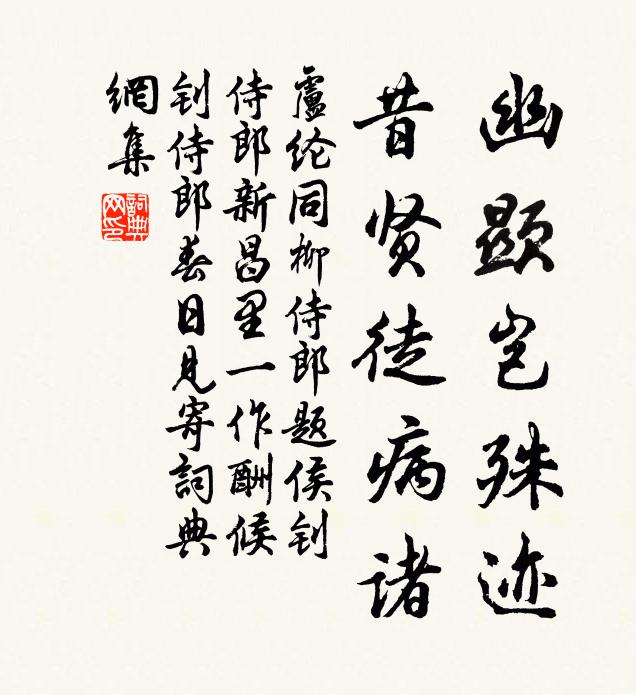 幽显岂殊迹
昔贤徒病诸
盧纶同柳侍郎题侯钊
侍郎新昌里一作酬候
钊侍郎春日見寄詞典
網集
詞典网印